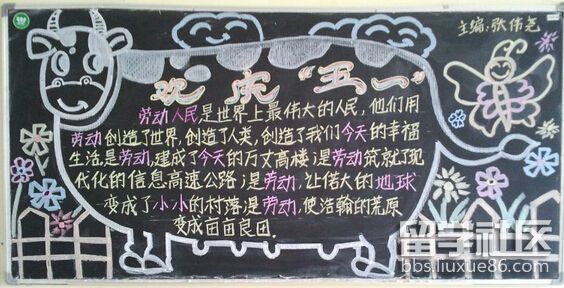 主编:张伟尧
欢庆“五一”
劳动人民是世界上最伟大的人民,他们用
劳动创造了世界,创造了人类,创造了我们今天的幸福
生活是劳动,建成了今天的万丈高楼;是劳动筑就了现
代化的信息高速公路;是劳动,让偌大的地球
变成了小小的村落;是劳动,使浩翰的荒原
变成亩亩良田.
留学社区
bbs.liuxue86.com